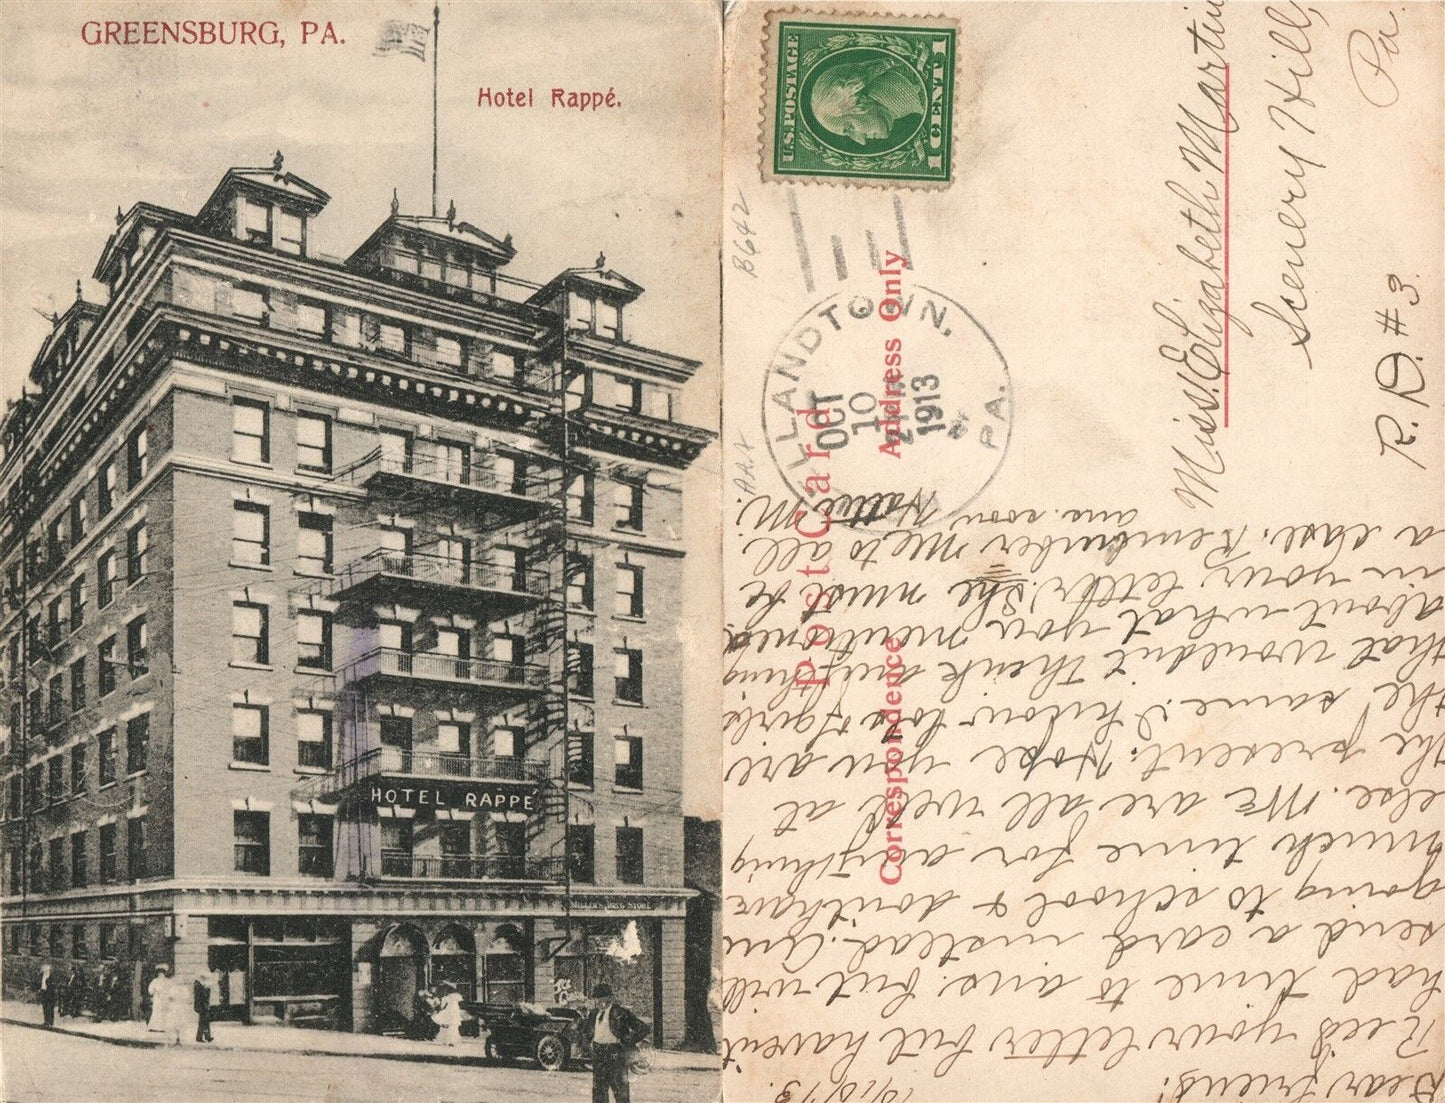 GREENSBURG, PA.
Hotel Rappé.
HOTEL RAPPÉ
U.S. POSTAGE
1 CENT 1
B642
ALLANDTOWN, PA.
OCT
10
2 PM
1913
Post Card
Correspondence
Address Only
Miss Elizabeth Martin
Scenery Hill,
Pa.
R.D. #3.
10/10/13.
Dear friend:
Rec'd your letter but haven't
had time to ans. but will
send a card instead. Am
going to school & don't have
much time for anything
else. We are all well at
the present. Hope you are
the same. I know lots of girls
that wouldn't think anything
about what you mentioned
in your letter. She must be
a case. Remember me to all.
ans. soon. Hattie M.